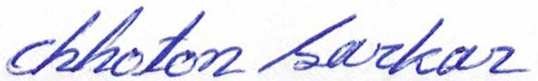 chhoton sarkar